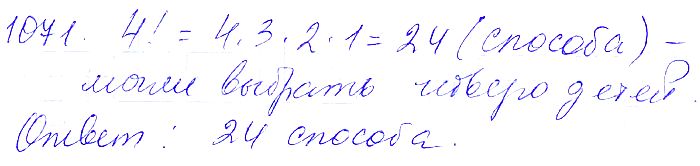 1071. 4! = 4·3·2·1 = 24 (способа) –
могли выбрать четверо детей.
Ответ: 24 способа.